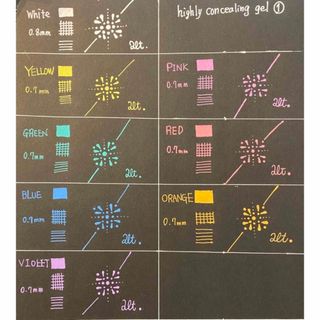 White
0.8mm
2lt.
highly concealing gel ①
YELLOW
0.7mm
2lt.
PINK
0.7mm
2lt.
GREEN
0.7mm
2lt.
RED
0.7mm
2lt.
BLUE
0.7mm
2lt.
ORANGE
0.7mm
2lt.
VIOLET
0.7mm
2lt.